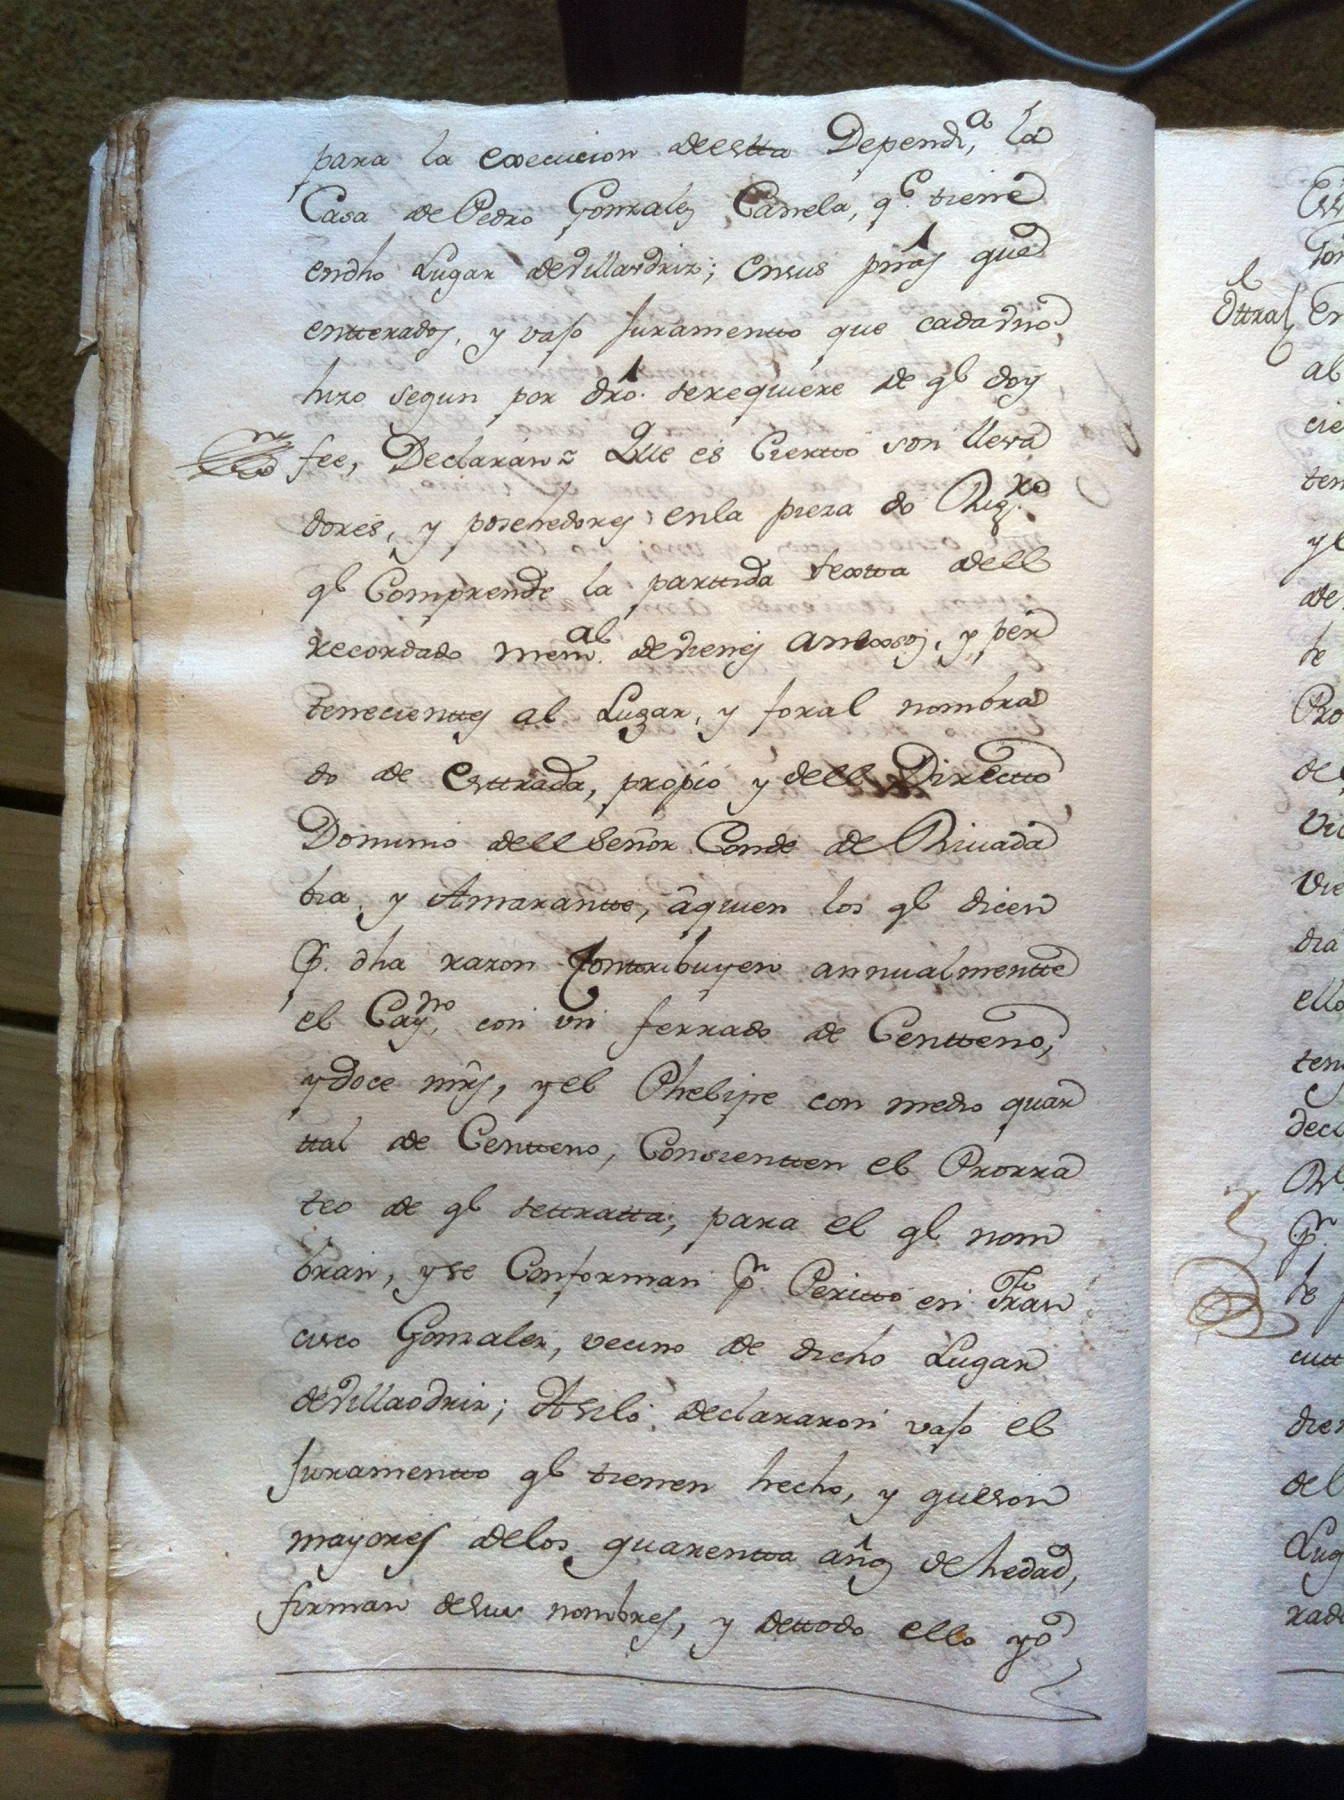 para la execucion deestta Dependª, la
Casa de Pedro Gonzalez Canela, qᵉ tiene
endho Lugar deVillaodriz; ensus prnas que
entterados, y vajo Juramentto que cadauno
hizo segun por dro. serequiere de ql doy
fee, Declaran = Que es Ciertto son lleva
dores, y posehedores, enla pieza do Rigᵡᵒ
ql Comprende la parttida sextta dell
recordado memᵃˡ. deVienes anexos, y per
tenecienttes al Lugar, y foral nombra
do de esttrada, propio y dell Directto
Dominio dell Señor Conde de Rivada
bia y Amarantte, âquien los ql dicen
P. dha razon Conttribuyen annualmentte
el Cayᵗⁿᵒ, con un ferrado de Centteno,
ydoce mrs, yel Phelipe con medio quar
ttal de Centteno, Consientten el Prorra
teo de ql settratta, para el ql nom
bran, yse Conforman pʳ. Peritto en Fran
cisco Gonzalez, vecino de dicho Lugar
deVillaodriz; Asilo declararon vajo el
Juramentto ql tienen hecho, y queson
mayores delos quarentta años de hedad,
firman desus nombres, y dettodo ello yo
dttral